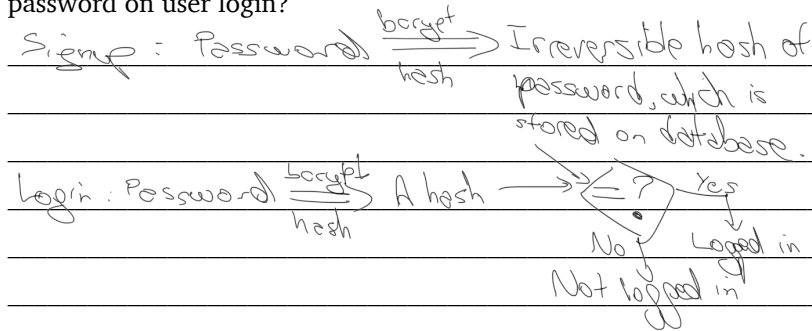 password on user login?
Signup : Password bcrypt hash Irreversible hash of
password, which is
stored on database.
Login : Password bcrypt hash A hash = ? Yes
No Logged in
Not logged in